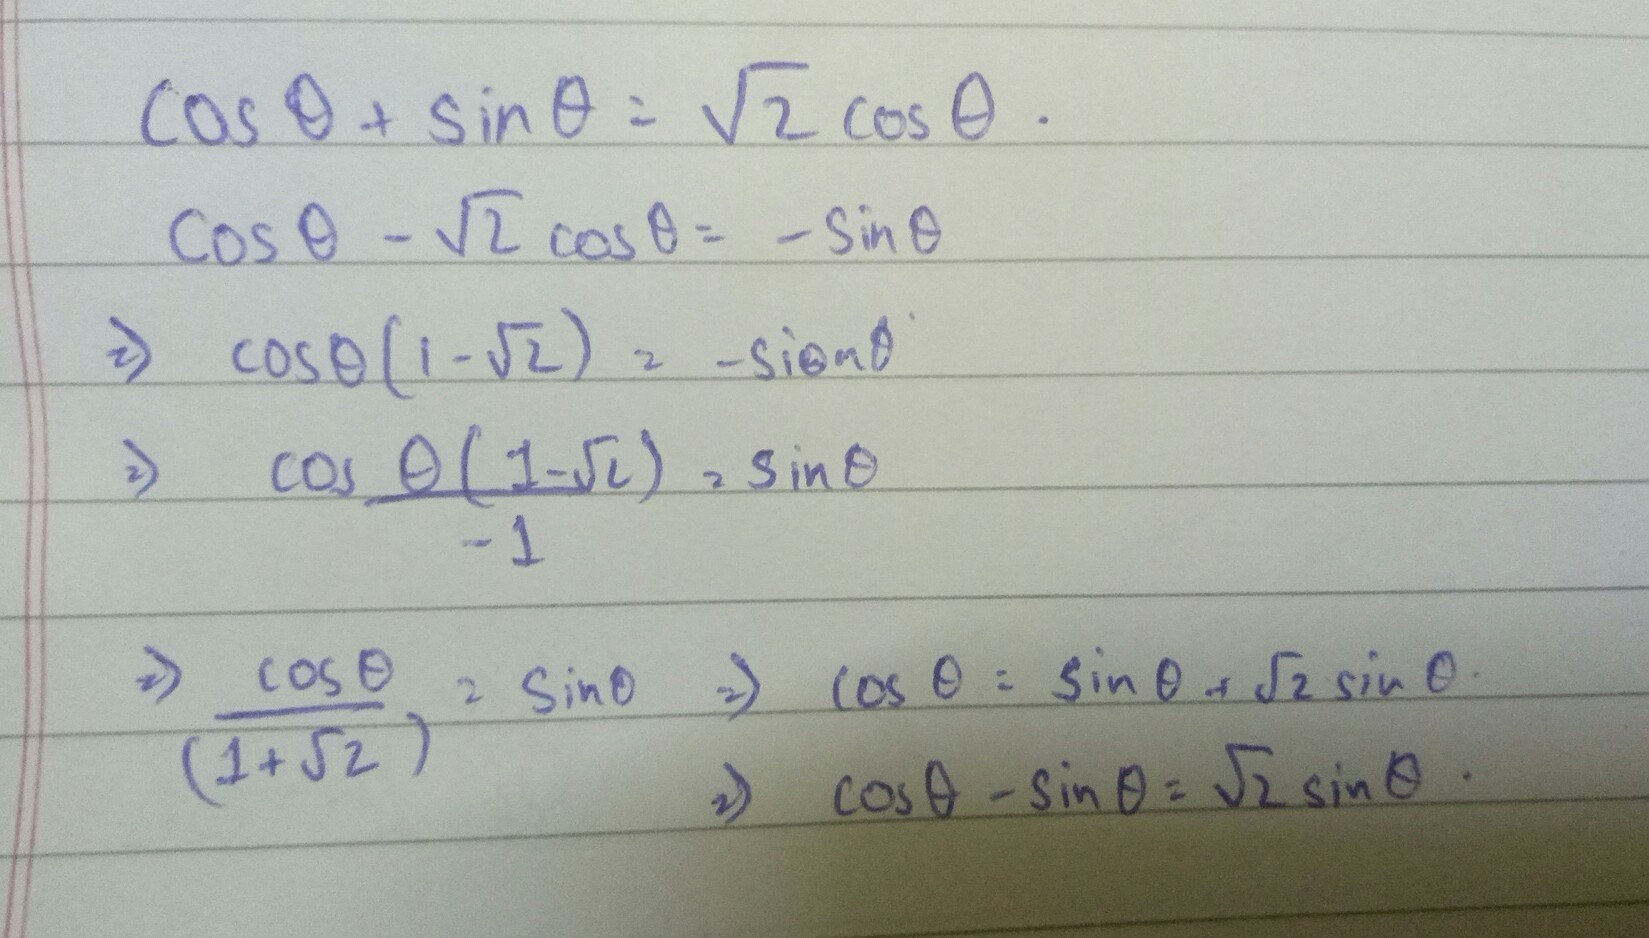 cos θ + sin θ = √2 cos θ.
cos θ - √2 cos θ = - sin θ
⇒ cosθ(1-√2) = -sinθ
⇒ cos θ(1-√2) / -1 = sin θ
⇒ cosθ / (1+√2) = sinθ ⇒ cos θ = sin θ + √2 sin θ.
⇒ cosθ - sin θ = √2 sin θ.